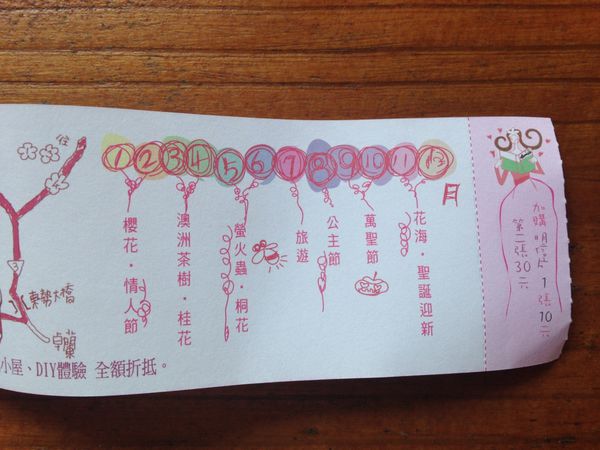 1 2 3 4 5 6 7 8 9 10 11 12 月
櫻花・情人節
澳洲茶樹・桂花
螢火蟲・桐花
旅遊
公主節
萬聖節
花海・聖誕迎新
往
3
東勢大橋
卓蘭
小屋、DIY體驗 全額折抵。
加購 明信片 1張10元
第二張30元